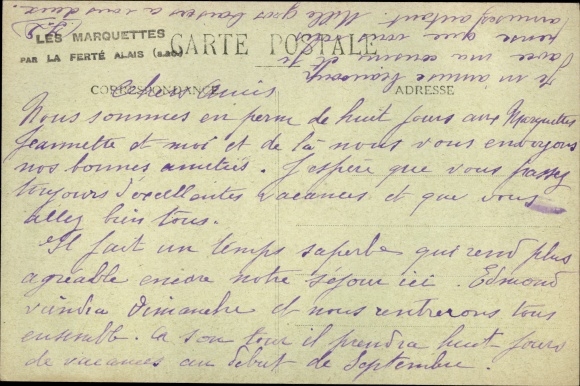 LES MARQUETTES
PAR LA FERTÉ ALAIS (S.&O.)
CARTE POSTALE
CORRESPONDANCE
ADRESSE
Chers Amis
Nous sommes en perm de huit jours aux Marquettes
Jeannette et moi et de là nous vous envoyons
nos bonnes amitiés. J'espère que vous passez
toujours d'excellentes vacances et que vous
allez bien tous.
Il fait un temps superbe qui rend plus
agréable encore notre séjour ici. Edmond
viendra Dimanche et nous rentrerons tous
ensemble. A son tour il prendra huit jours
de vacances au début de Septembre.
Je m'amuse beaucoup
avec ma cousine et je
pense que vous vous
amusez autant. Mille gros baisers à vous deux.